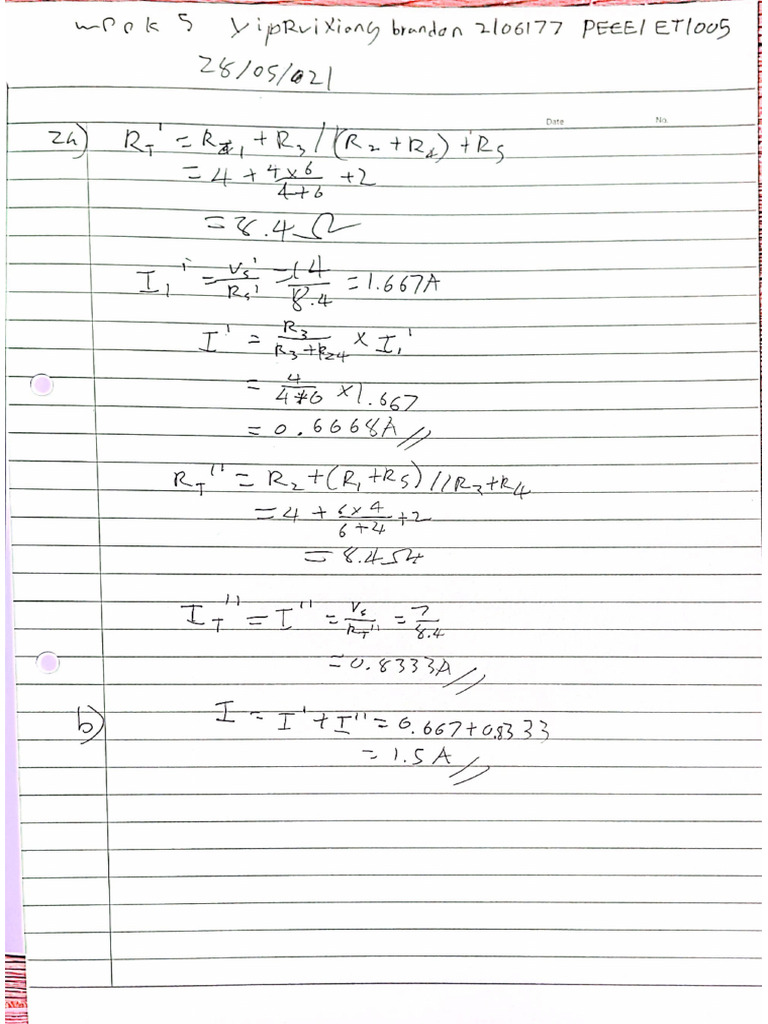 week 5 YipRuiXiang brandon 2106177 PEEE1 ET1005
28/05/021
Date No.
2a) R_T' = R_1 + R_3 // (R_2 + R_4) + R_5
= 4 + (4 × 6)/(4 + 6) + 2
= 8.4 Ω
I_1' = V_s'/R_s' = 14/8.4 = 1.667A
I' = R_3/(R_3 + R_24) × I_1'
= 4/(4+6) × 1.667
= 0.6668A //
R_T'' = R_2 + (R_1 + R_5) // R_3 + R_4
= 4 + (6 × 4)/(6 + 4) + 2
= 8.4 Ω
I_T'' = I'' = V_s/R_T'' = 7/8.4
= 0.8333A //
b) I = I' + I'' = 0.667 + 0.8333
= 1.5 A //